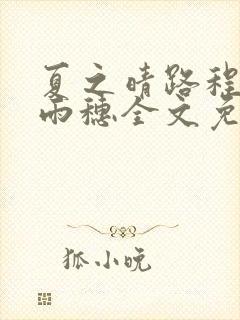 夏之晴路程
雨穗全文免
狐小晚